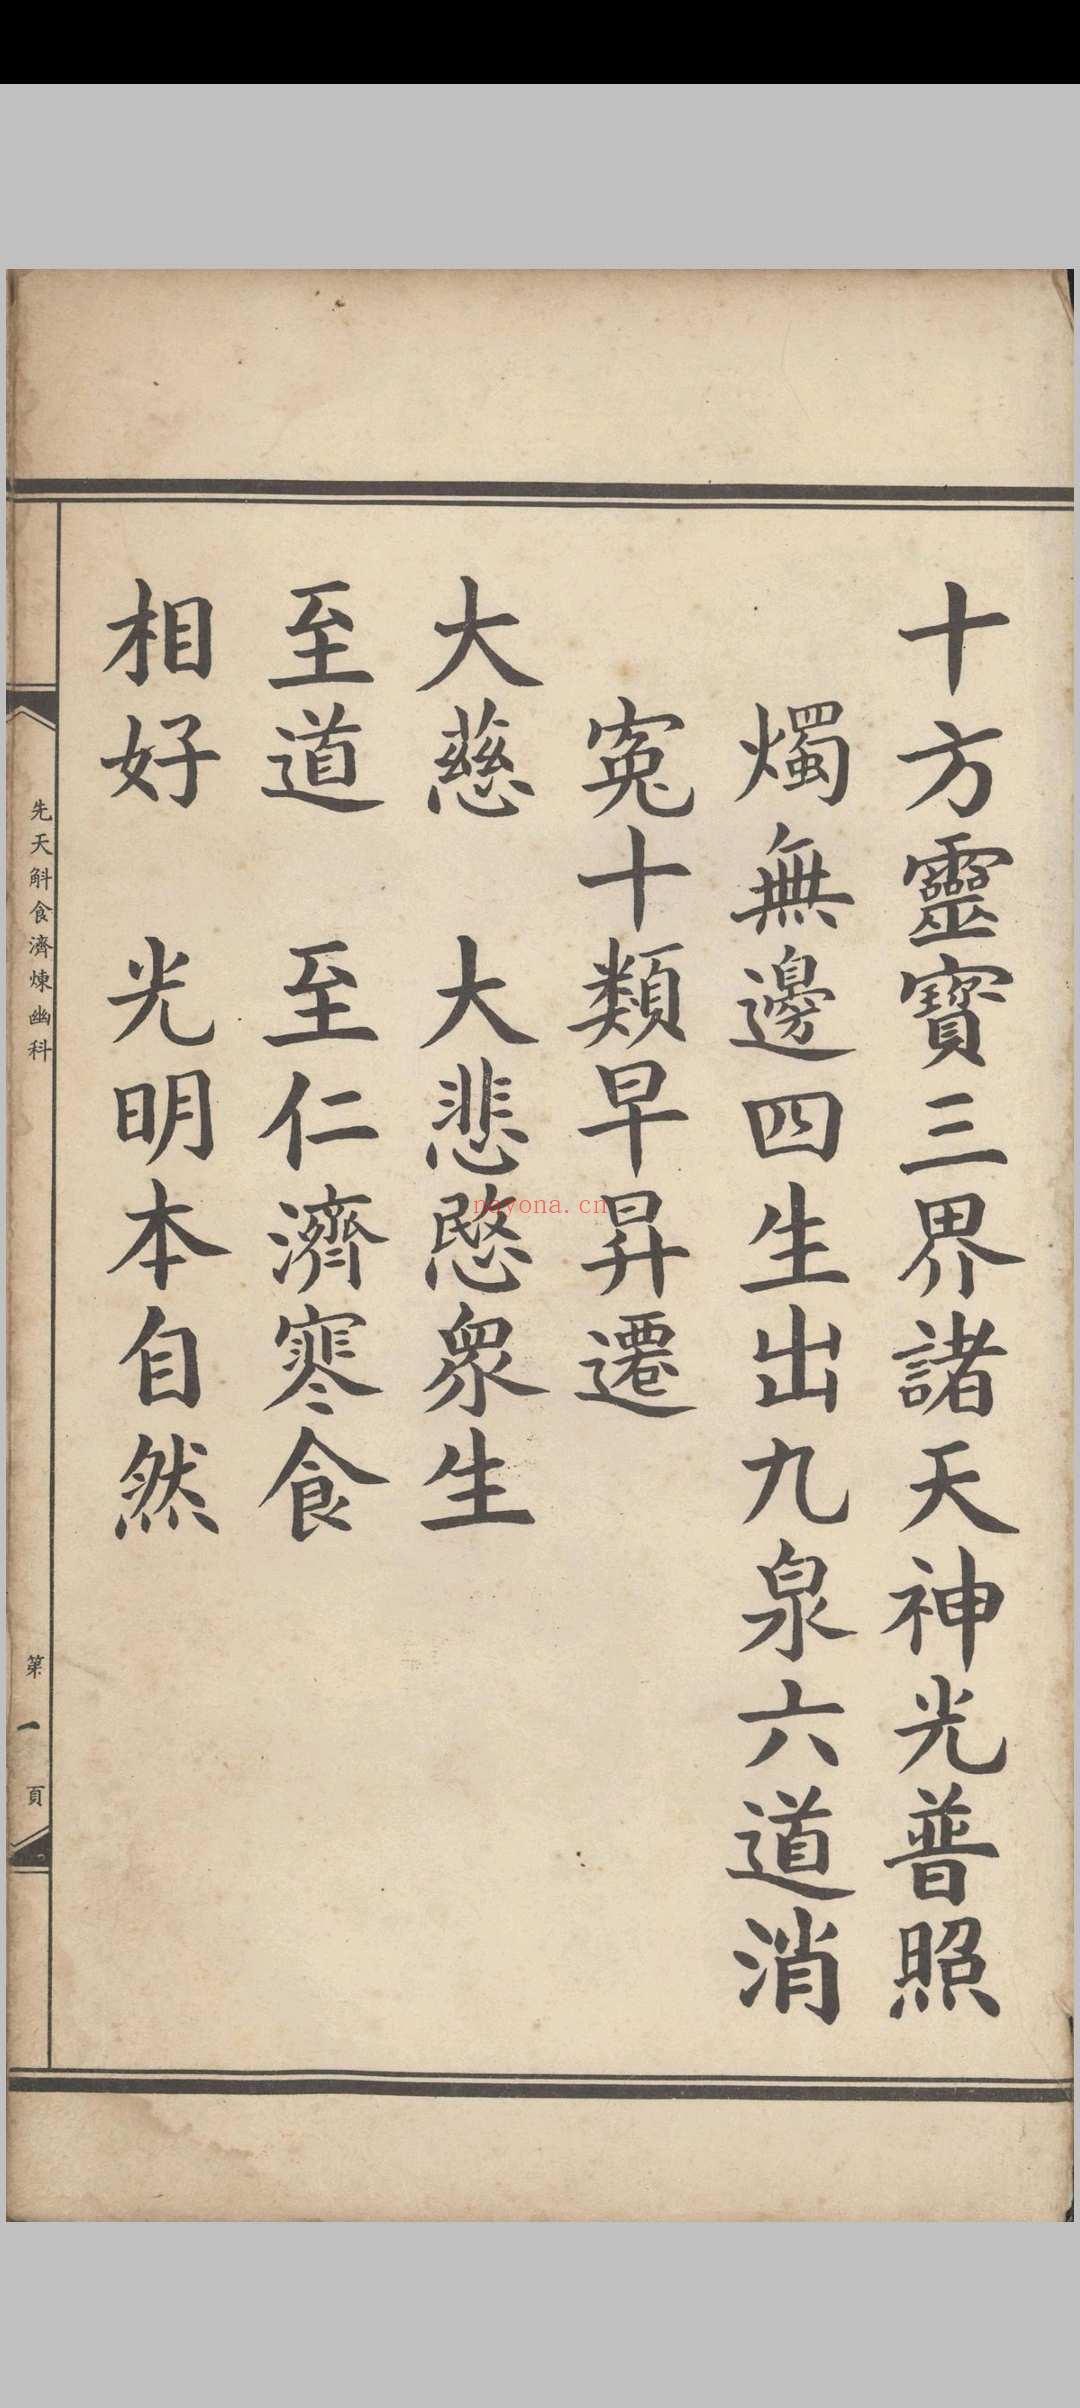 十方靈寶三界諸天神光普照
燭無邊四生出九泉六道消
寃十類早昇遷
大慈　大悲愍衆生
至道　至仁濟寒食
相好　光明本自然
先天斛食濟煉幽科
第一頁
nayona.cn